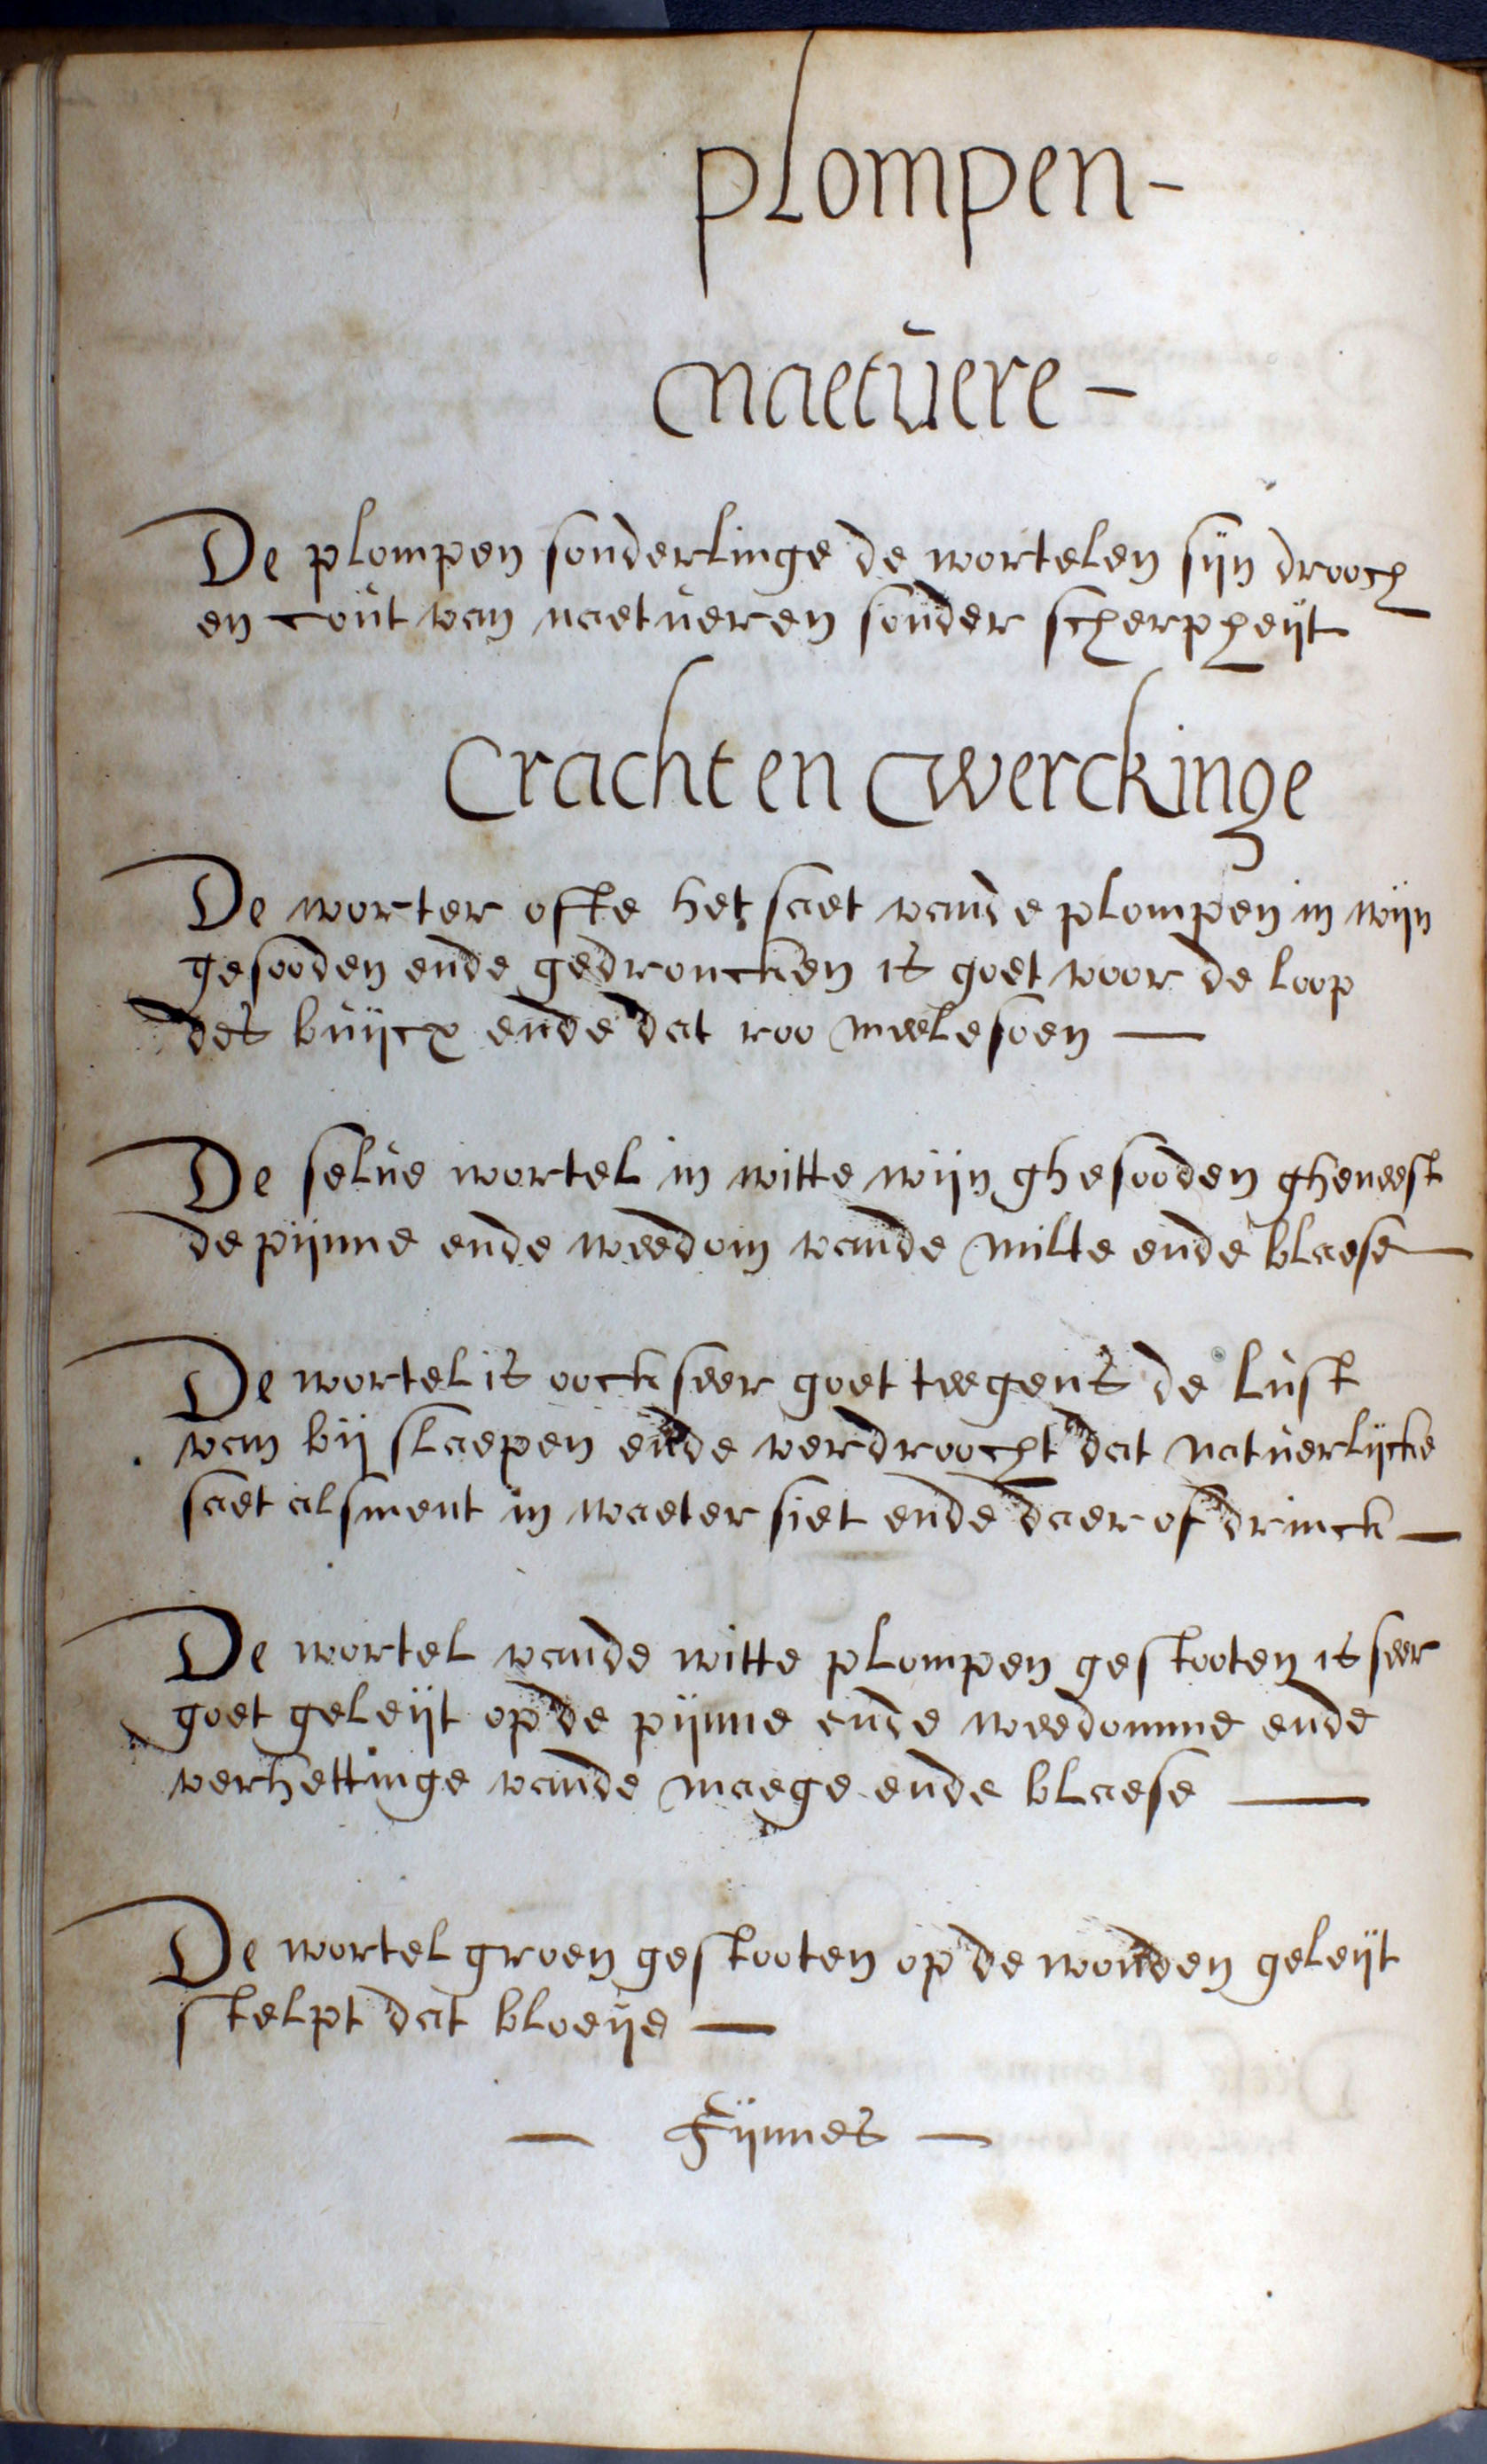 plompen -
naetuere -
De plompen sonderlinge de wortelen sijn drooch
en cout van naetueren sonder scherpheijt
Cracht en werckinge
De worter ofte het saet vande plompen in wijn
gesooden ende gedroncken is goet voor de loop
des buijcx ende dat roo meelesoen —
De selue wortel in witte wijn ghesooden gheneest
de pijnne ende weedom vande milte ende blaese —
De wortel is oock seer goet teegens de lust
van bij slaepen ende verdroocht dat natuerlijcke
saet alsment in waeter siet ende daer of drinck —
De wortel vande witte plompen gestooten is seer
goet geleijt op de pijnne ende weedomme ende
verhettinge vande maege ende blaese —
De wortel groen gestooten op de wonden geleijt
stelpt dat bloeije —
— Fijnnes —